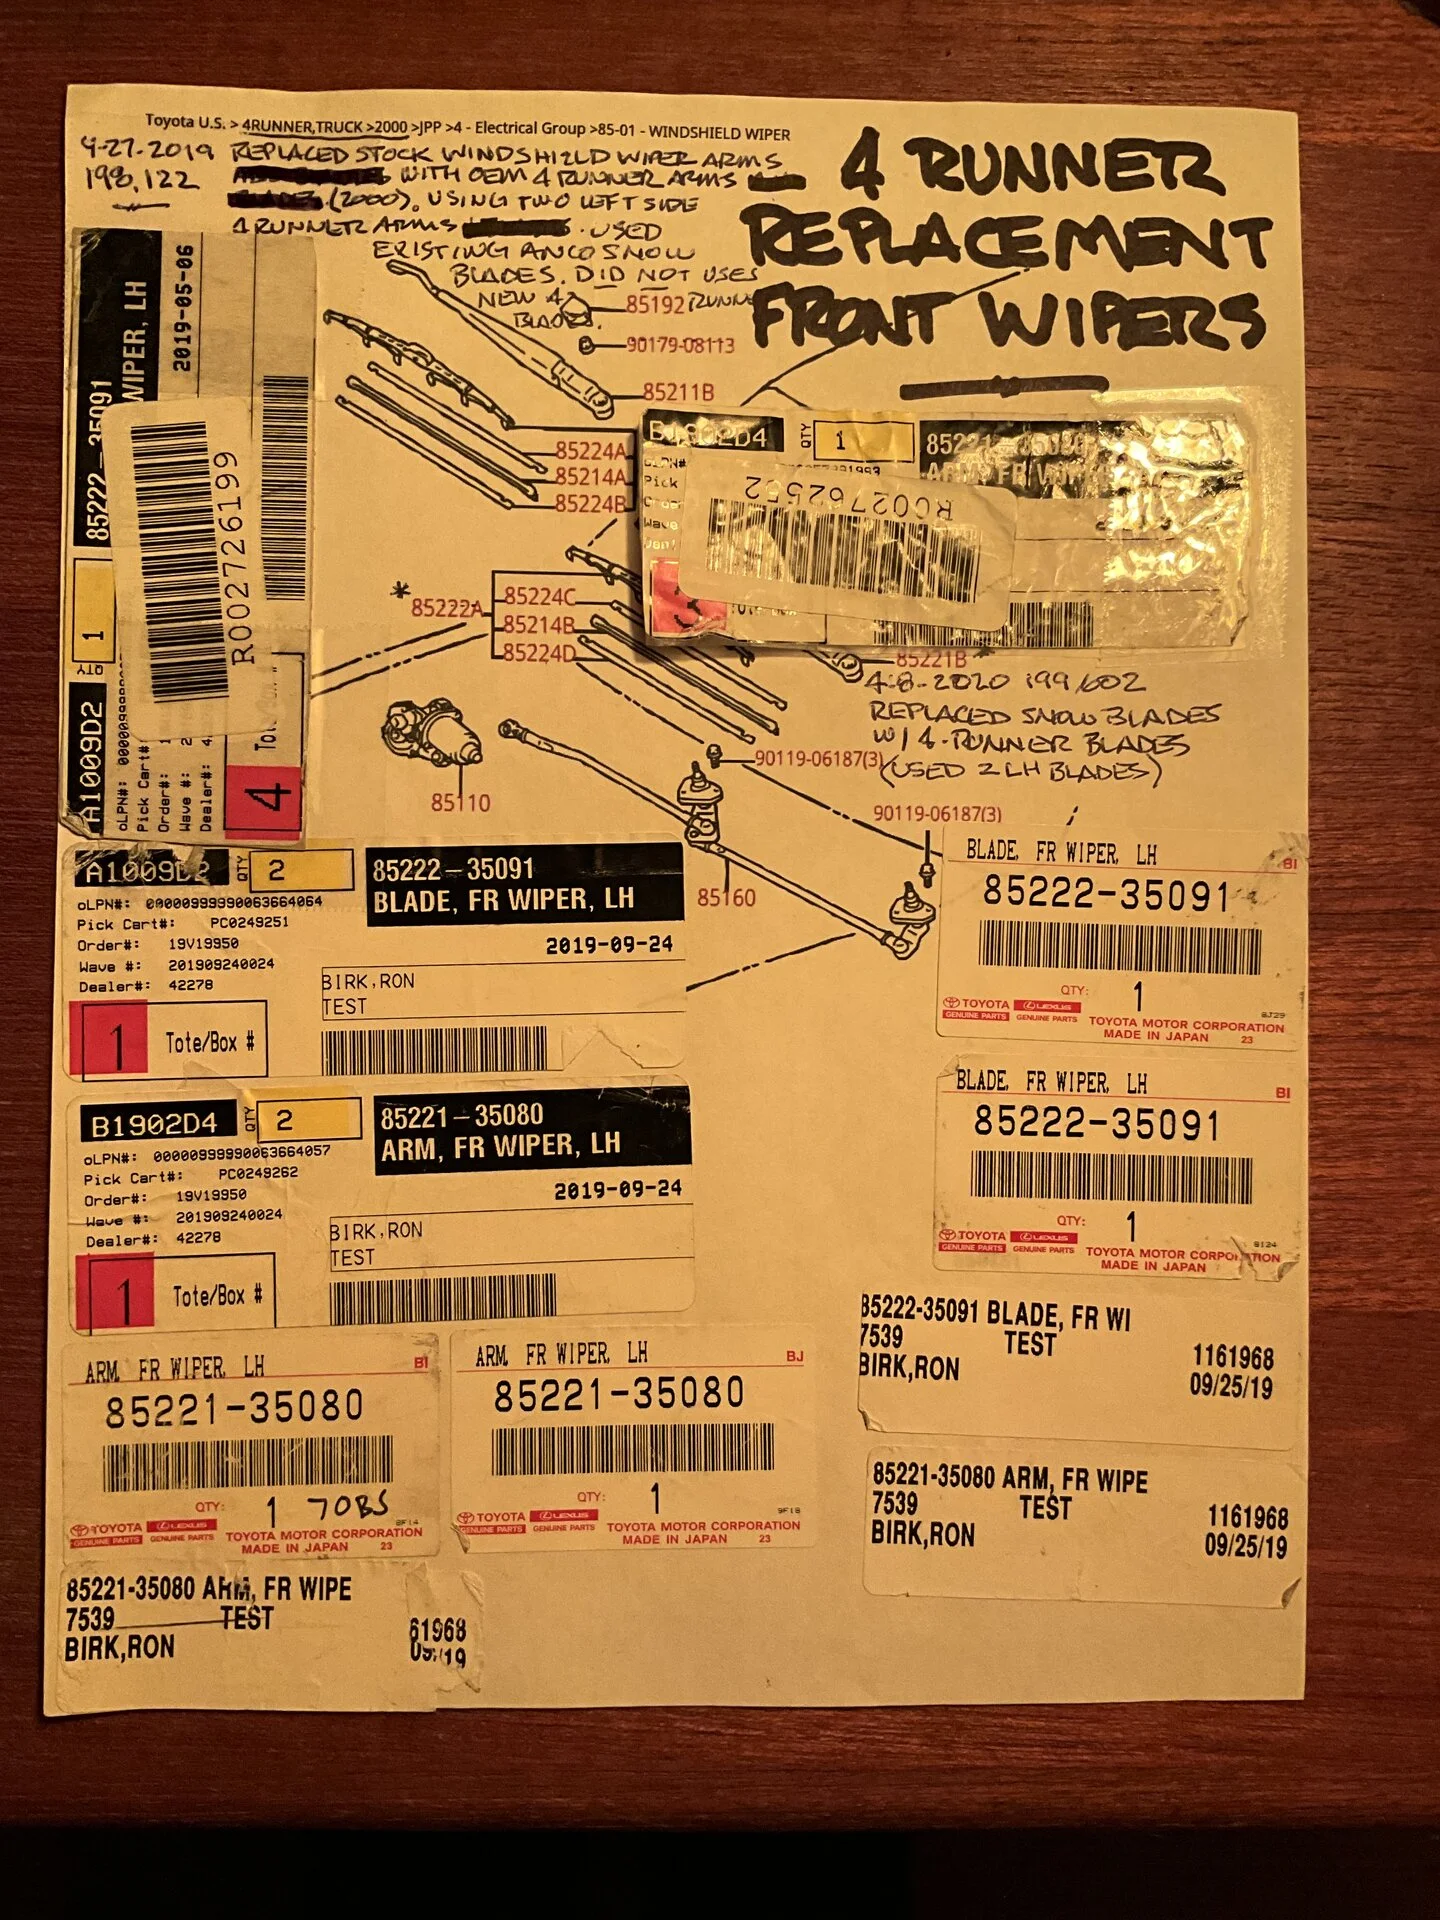 Toyota U.S. > 4RUNNER,TRUCK >2000 >JPP >4 - Electrical Group >85-01 - WINDSHIELD WIPER
4-27-2019 REPLACED STOCK WINDSHIELD WIPER ARMS
198,122 WITH OEM 4 RUNNER ARMS
(2000), USING TWO LEFT SIDE
4 RUNNER ARMS . USED
EXISTING ANCO SNOW
BLADES. DID NOT USES
NEW 4 RUNNE
BLADES.
4 RUNNER
REPLACEMENT
FRONT WIPERS
85192
90179-08113
85211B
85224A
85214A
85224B
* 85222A
85224C
85214B
85224D
85221B *
4-8-2020 199,602
REPLACED SNOW BLADES
W/ 4-RUNNER BLADES
(USED 2 LH BLADES)
90119-06187(3)
90119-06187(3)
85110
85160
85222-35091
WIPER, LH
2019-05-06
R002726199
1
QTY
A1009D2
oLPN#:
Pick Cart#:
Order#:
Wave #:
Dealer#:
4
B1902D4
QTY
1
85221-35080
ARM, FR WIPER
Pick
Order
Wave
R002762552
A1009D2
QTY
2
85222-35091
BLADE, FR WIPER, LH
oLPN#: 00000999990063664064
Pick Cart#: PC0249251
Order#: 19V19950
Wave #: 201909240024
Dealer#: 42278
2019-09-24
BIRK,RON
TEST
1
Tote/Box #
B1902D4
QTY
2
85221-35080
ARM, FR WIPER, LH
oLPN#: 00000999990063664057
Pick Cart#: PC0249262
Order#: 19V19950
Wave #: 201909240024
Dealer#: 42278
2019-09-24
BIRK,RON
TEST
1
Tote/Box #
BLADE, FR WIPER, LH
BI
85222-35091
QTY: 1
TOYOTA LEXUS
GENUINE PARTS GENUINE PARTS
TOYOTA MOTOR CORPORATION
MADE IN JAPAN 23
BLADE, FR WIPER, LH
BI
85222-35091
QTY: 1
TOYOTA LEXUS
GENUINE PARTS GENUINE PARTS
TOYOTA MOTOR CORPORATION
MADE IN JAPAN
85222-35091 BLADE, FR WI
7539 TEST 1161968
BIRK,RON 09/25/19
ARM, FR WIPER, LH
BI
85221-35080
QTY: 1 70BS
TOYOTA LEXUS
GENUINE PARTS GENUINE PARTS
TOYOTA MOTOR CORPORATION
MADE IN JAPAN 23
ARM, FR WIPER, LH
BJ
85221-35080
QTY: 1
9F18
TOYOTA LEXUS
GENUINE PARTS GENUINE PARTS
TOYOTA MOTOR CORPORATION
MADE IN JAPAN 23
85221-35080 ARM, FR WIPE
7539 TEST 1161968
BIRK,RON 09/25/19
85221-35080 ARM, FR WIPE
7539 TEST 61968
BIRK,RON